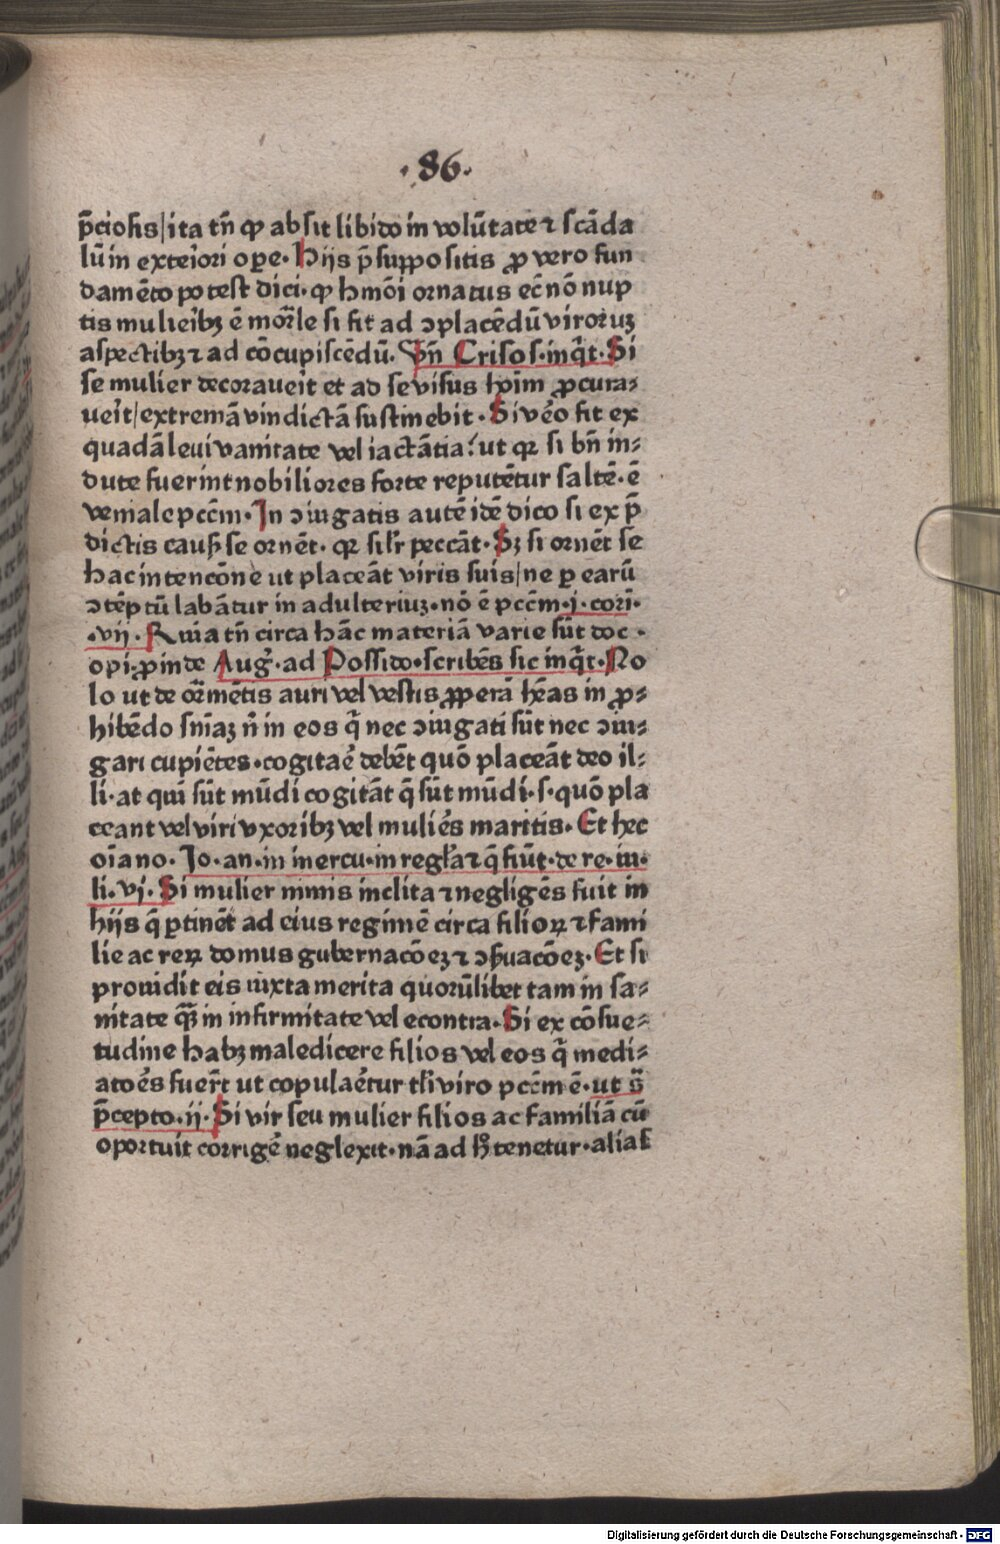 ·86·
p̄ciosis/ita tn̄ ꝙ absit libido in volūtate ⁊ scāda
lū in exteriori oꝑe· Hijs p̄suppositis ꝓ vero fun
damēto potest dici· ꝙ hmōi ornatus ec̄ nō nup
tis mulieribꝫ ē mor̄le si fit ad ↄplacēdū viroruꝫ
aspectibꝫ ⁊ ad cōcupiscēdū. Vn̄ Crisos·inq̄t·Si
se mulier decorauerit et ad se visus hoīm ꝓcura⸗
uerit/extremā vindictā sustinebit·Si vēo fit ex
quadā leui vanitate vel iactātia/ut qꝛ si bn̄ in⸗
dute fuerint nobiliores forte reputētur saltē·ē
veniale pccm̄·In ↄiugatis autē idē dico si ex p̄
dictis causis se ornēt· qꝛ silr̄ peccāt·Sꝫ si ornēt se
hac intencōne ut placeāt viris suis/ne ꝑ earū
ↄtēptū labātur in adulteriuꝫ·nō ē pccm̄·j·cori·
·vij·Quia tn̄ circa hāc materiā varie sūt doc·
opi·ꝓinde Aug·ad Possido·scribēs sic inq̄t·No
lo ut de or̄mētis auri vel vestis ꝓperā hēas in ꝓ⸗
hibēdo sniāꝫ n̄ in eos q̄ nec ↄiugati sūt nec ↄiu⸗
gari cupiētes·cogitaē debēt quō placeāt deo il⸗
li·at qui sūt mūdi cogitāt q̄ sūt mūdi·s·quō pla
ceant vel viri vxoribꝫ vel muliēs maritis·Et hec
oīa no·Jo·an·in mercu·in regl̄a ⁊ q̄ fiūt·de re·iu·
li·vj·Si mulier nimis inclita ⁊ negligēs fuit in
hijs q̄ ꝑtinēt ad eius regimē circa filioꝝ ⁊ fami
lie ac reꝝ domus gubernacōeꝫ ⁊ ↄẜuacōeꝫ·Et si
prouidit eis iuxta merita quorūlibet tam in sa⸗
nitate qꝫ in infirmitate vel econtra·Si ex cōsue⸗
tudine habꝫ maledicere filios vel eos q̄ medi⸗
atoēs fuer̄t ut copulaētur tli viro pccm̄ ē·ut s̄
p̄cepto·ij·Si vir seu mulier filios ac familiā cū
oportuit corrigē neglexit·nā ad h̄ tenetur·alias
Digitalisierung gefördert durch die Deutsche Forschungsgemeinschaft · DFG